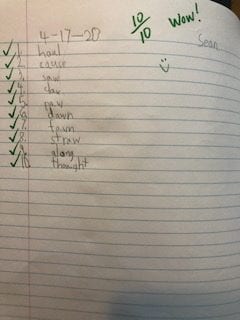 4-17-20 10/10 Wow!
Sean
1. haul
2. cause
3. saw
4. claw
5. paw
6. dawn
7. fawn
8. straw
9. along
10. thought